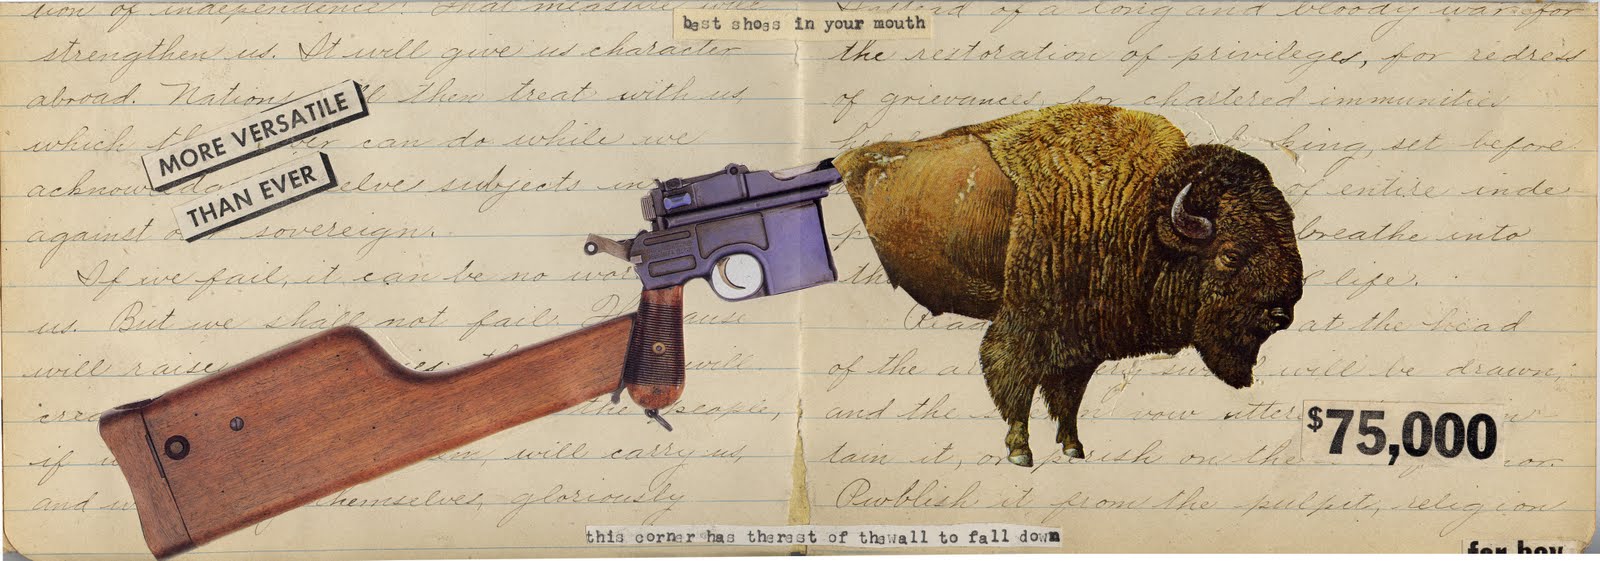 best shoes in your mouth
tion of independence! That measure will
strengthen us. It will give us character
abroad. then treat with us,
MORE VERSATILE
which can do while we
THAN EVER
subjects in
against sovereign.
If we fail, it can be no
us. But we shall not fail.
will raise will
the people,
if will carry us,
and themselves, gloriously
Instead of a long and bloody war for
the restoration of privileges, for redress
of grievances, for chartered immunities
king, set before
of entire inde
breathe into
life.
at the head
of the will be drawn,
and the vow
$75,000
tain it, or perish on the
Publish it from the pulpit, religion
this corner has therest of thewall to fall down
for boy